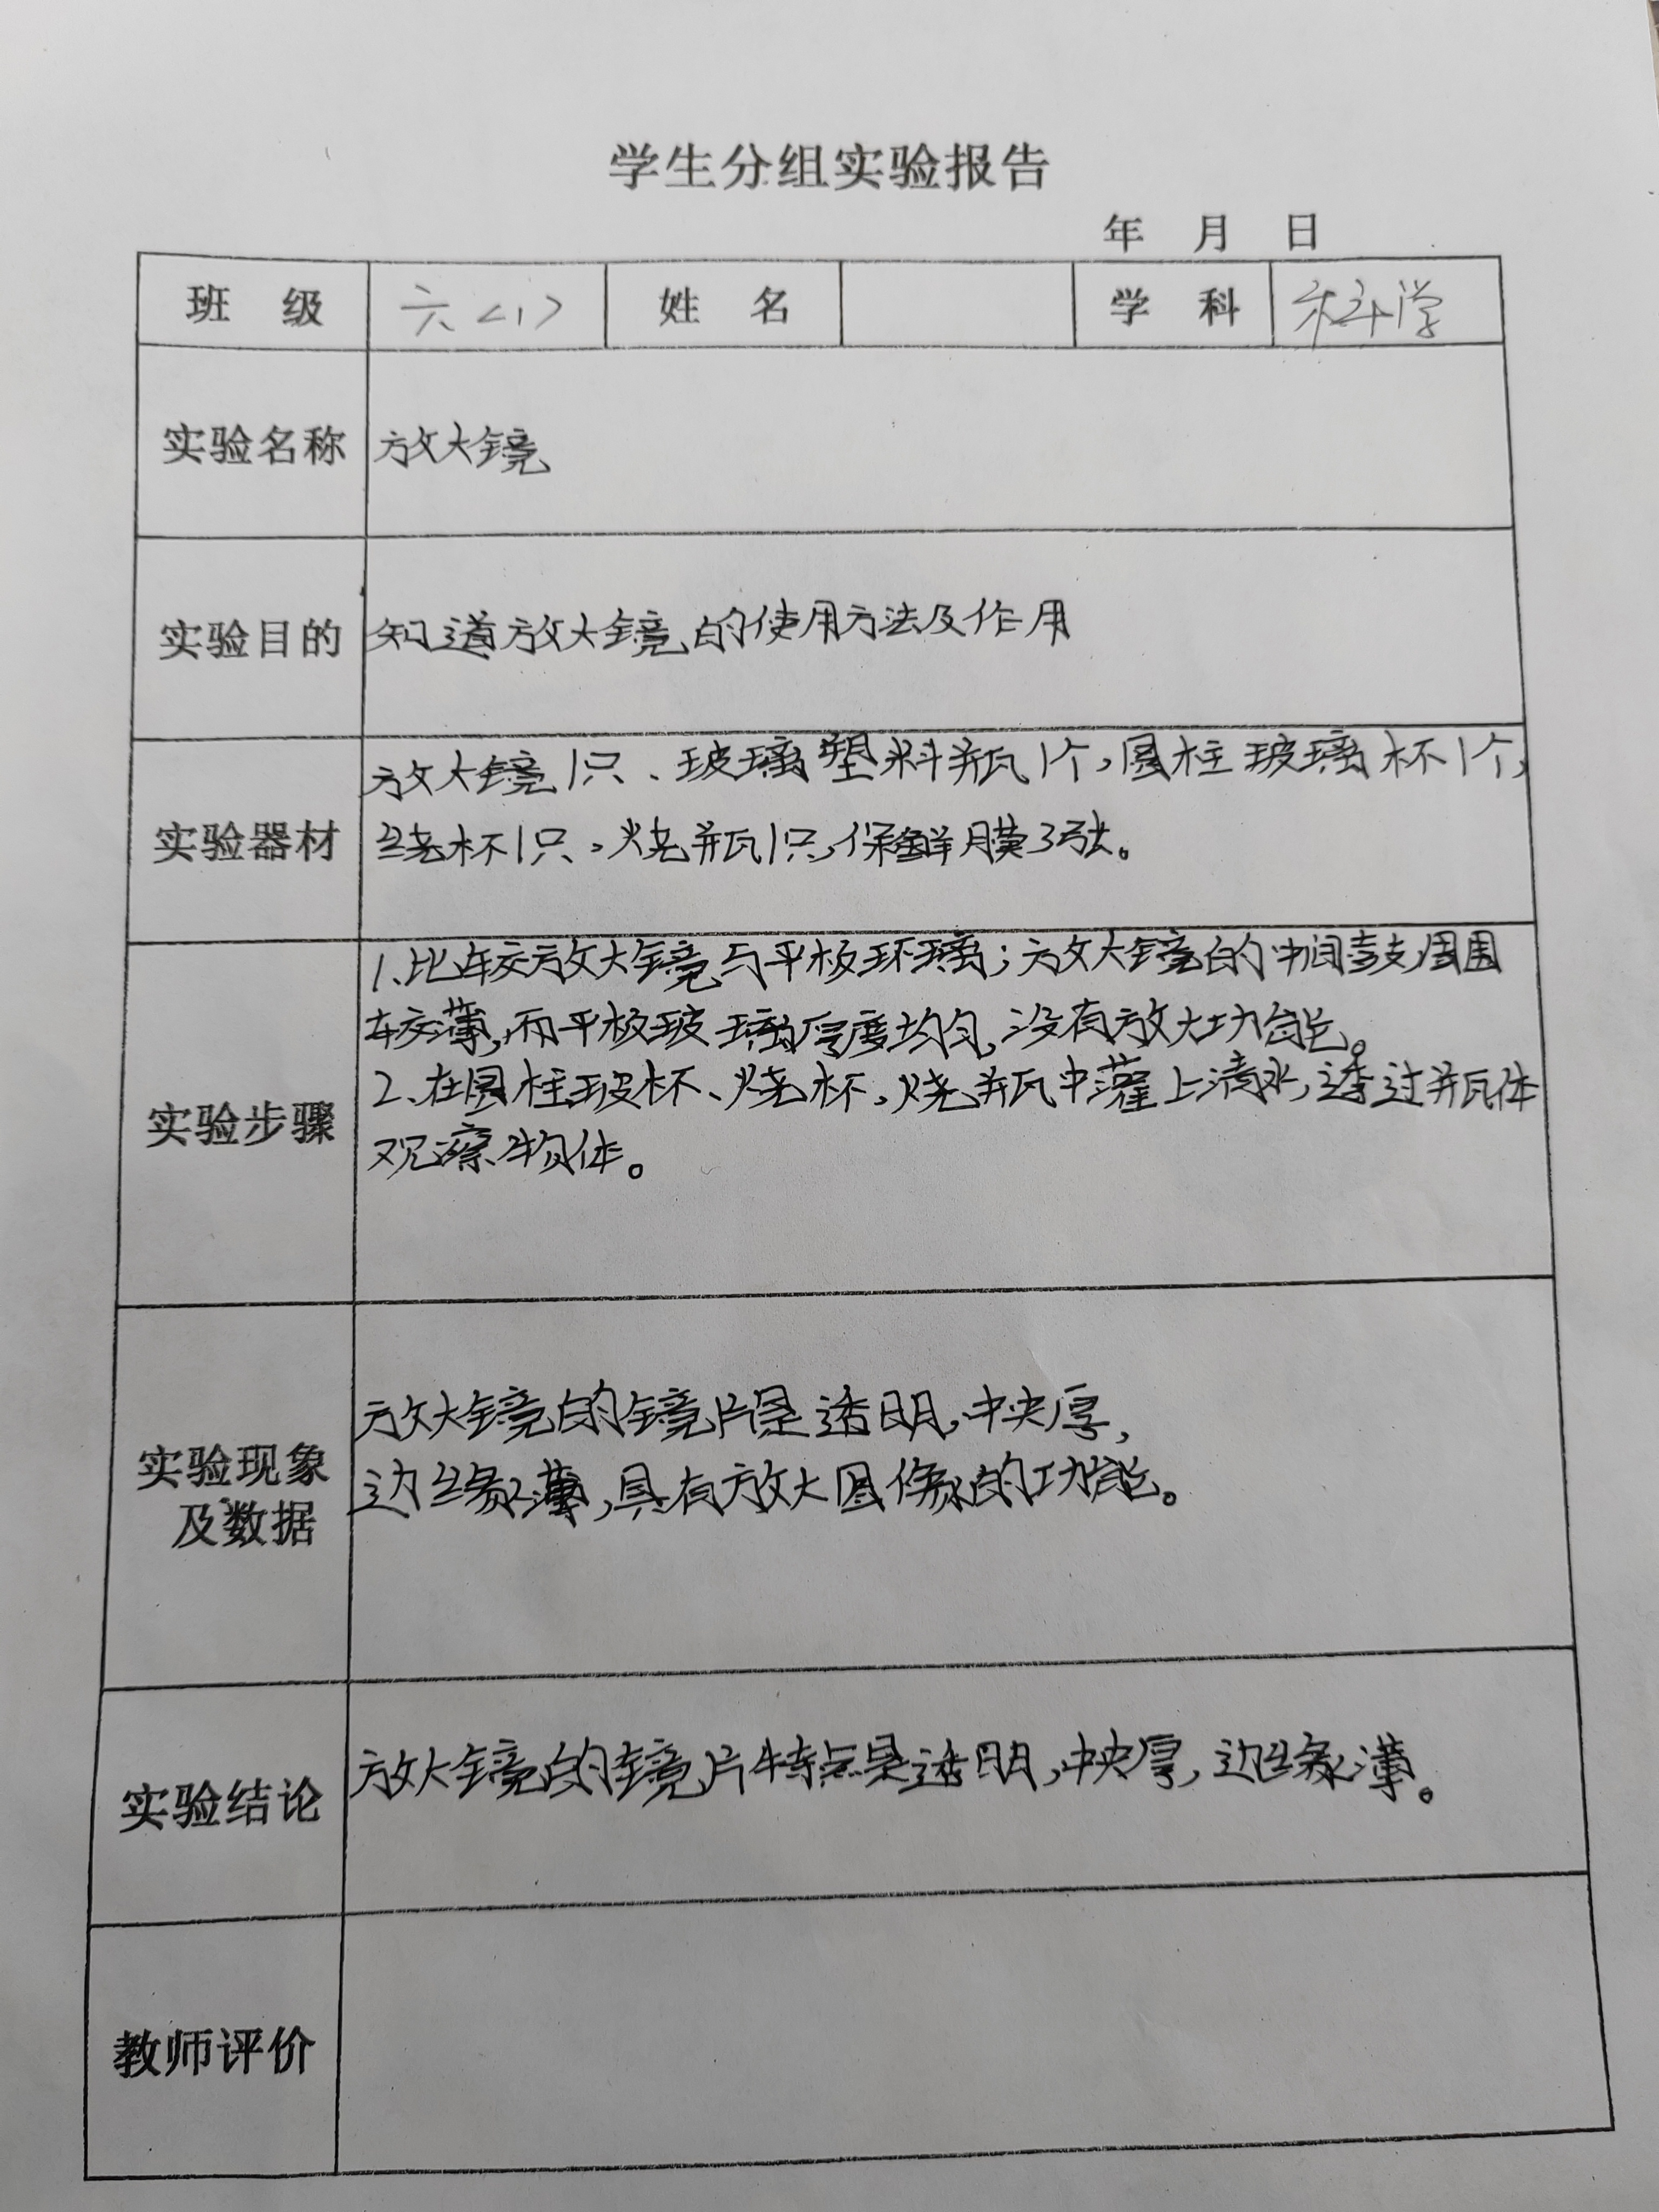 学生分组实验报告
年 月 日
班 级 六<1> 姓 名 学 科 科学
实验名称 放大镜
实验目的 知道放大镜的使用方法及作用
放大镜1只、玻璃塑料瓶1个,圆柱玻璃杯1个,
实验器材 烧杯1只,烧瓶1只,保鲜膜3张。
1.比较放大镜与平板环璃;放大镜的中间鼓,周围
较薄,而平板玻璃厚度均匀,没有放大功能。
2.在圆柱玻杯、烧杯、烧瓶中灌上清水,透过瓶体
实验步骤
观察物体。
放大镜的镜片是透明,中央厚,
实验现象
边缘薄,具有放大图像的功能。
及数据
放大镜的镜片特点是透明,中央厚,边缘薄。
实验结论
教师评价